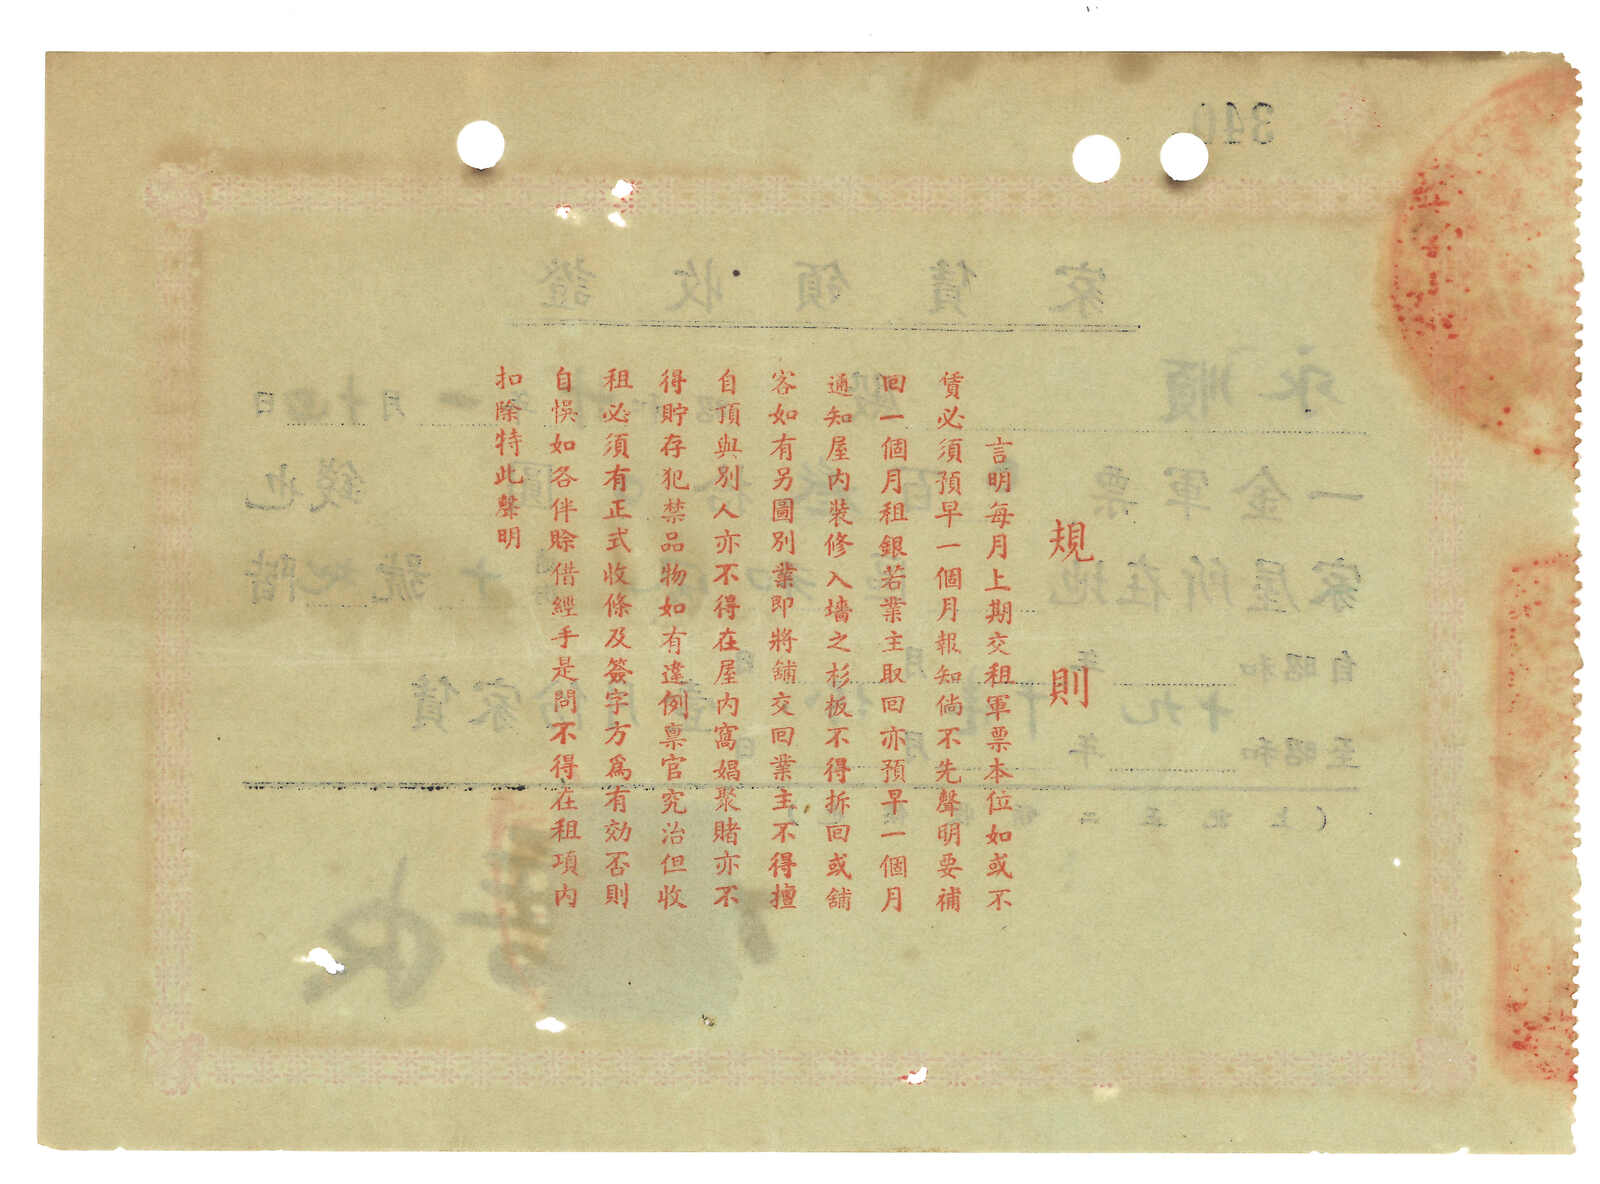 規則
言明每月上期交租軍票本位如或不
賃必須預早一個月報知倘不先聲明要補
回一個月租銀若業主取回亦預早一個月
通知屋內裝修入墻之杉板不得拆回或舖
客如有另圖別業即將舖交回業主不得擅
自頂與別人亦不得在屋內窩娼聚賭亦不
得貯存犯禁品物如有違例禀官究治但收
租必須有正式收條及簽字方爲有効否則
自悞如各伴賒借經手是問不得在租項內
扣除特此聲明
340
家賃領收證
永順
月十四日
一金軍票
錢也
家屋所在地
十號地階
自昭和 年 月 日
至昭和 年 月 日
家賃